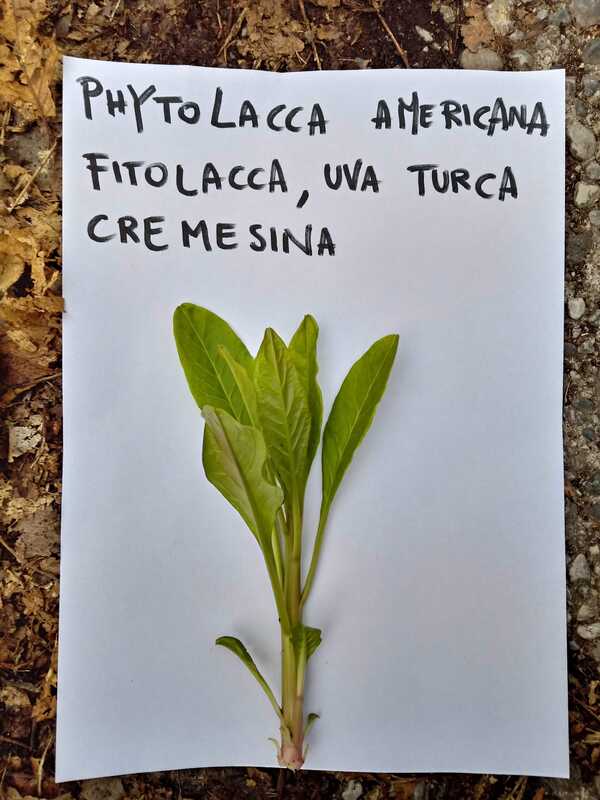 PHYTOLACCA AMERICANA
FITOLACCA, UVA TURCA
CREMESINA